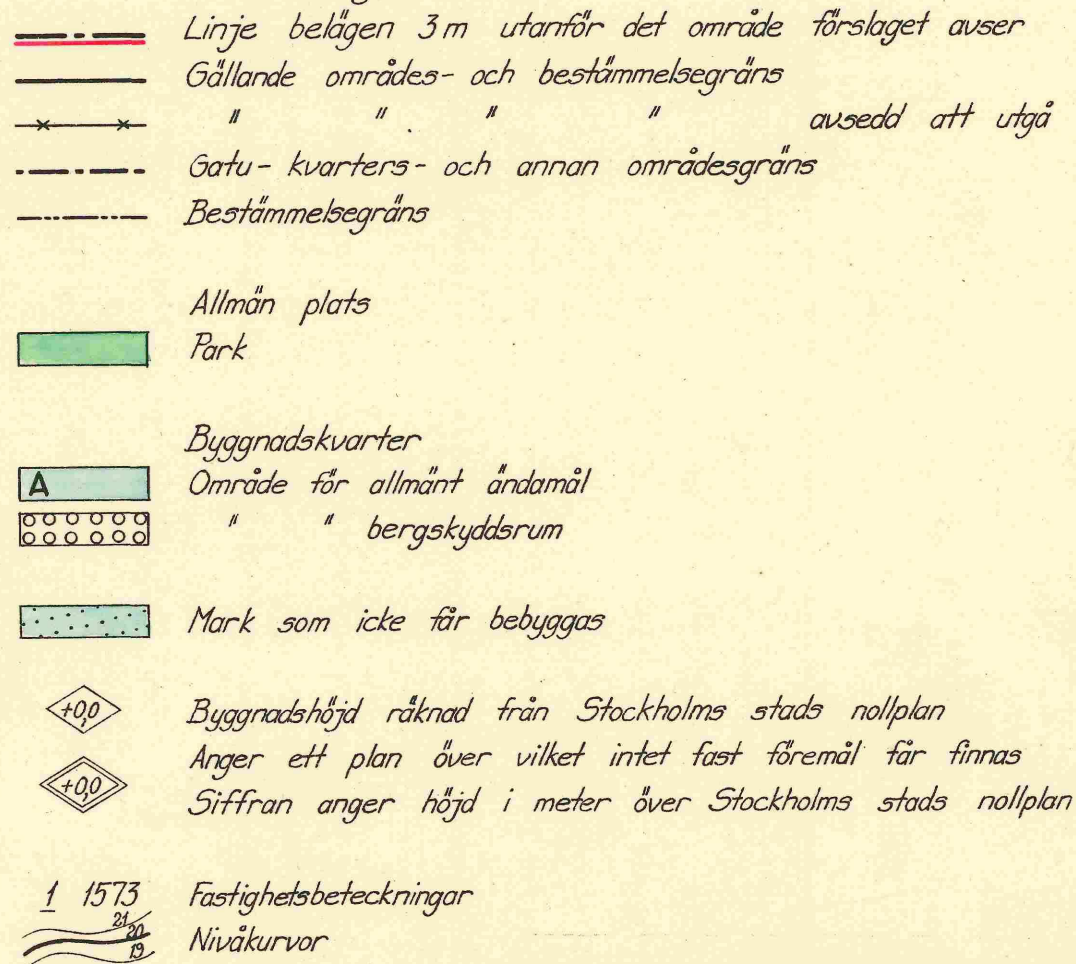 Linje belägen 3 m utanför det område förslaget avser
Gällande områdes- och bestämmelsegräns
" " " " avsedd att utgå
Gatu- kvarters- och annan områdesgräns
Bestämmelsegräns
Allmän plats
Park
Byggnadskvarter
A Område för allmänt ändamål
" " bergskyddsrum
Mark som icke får bebyggas
+0,0 Byggnadshöjd räknad från Stockholms stads nollplan
Anger ett plan över vilket intet fast föremål får finnas
+0,0
Siffran anger höjd i meter över Stockholms stads nollplan
1 1573 Fastighetsbeteckningar
21 20 19 Nivåkurvor